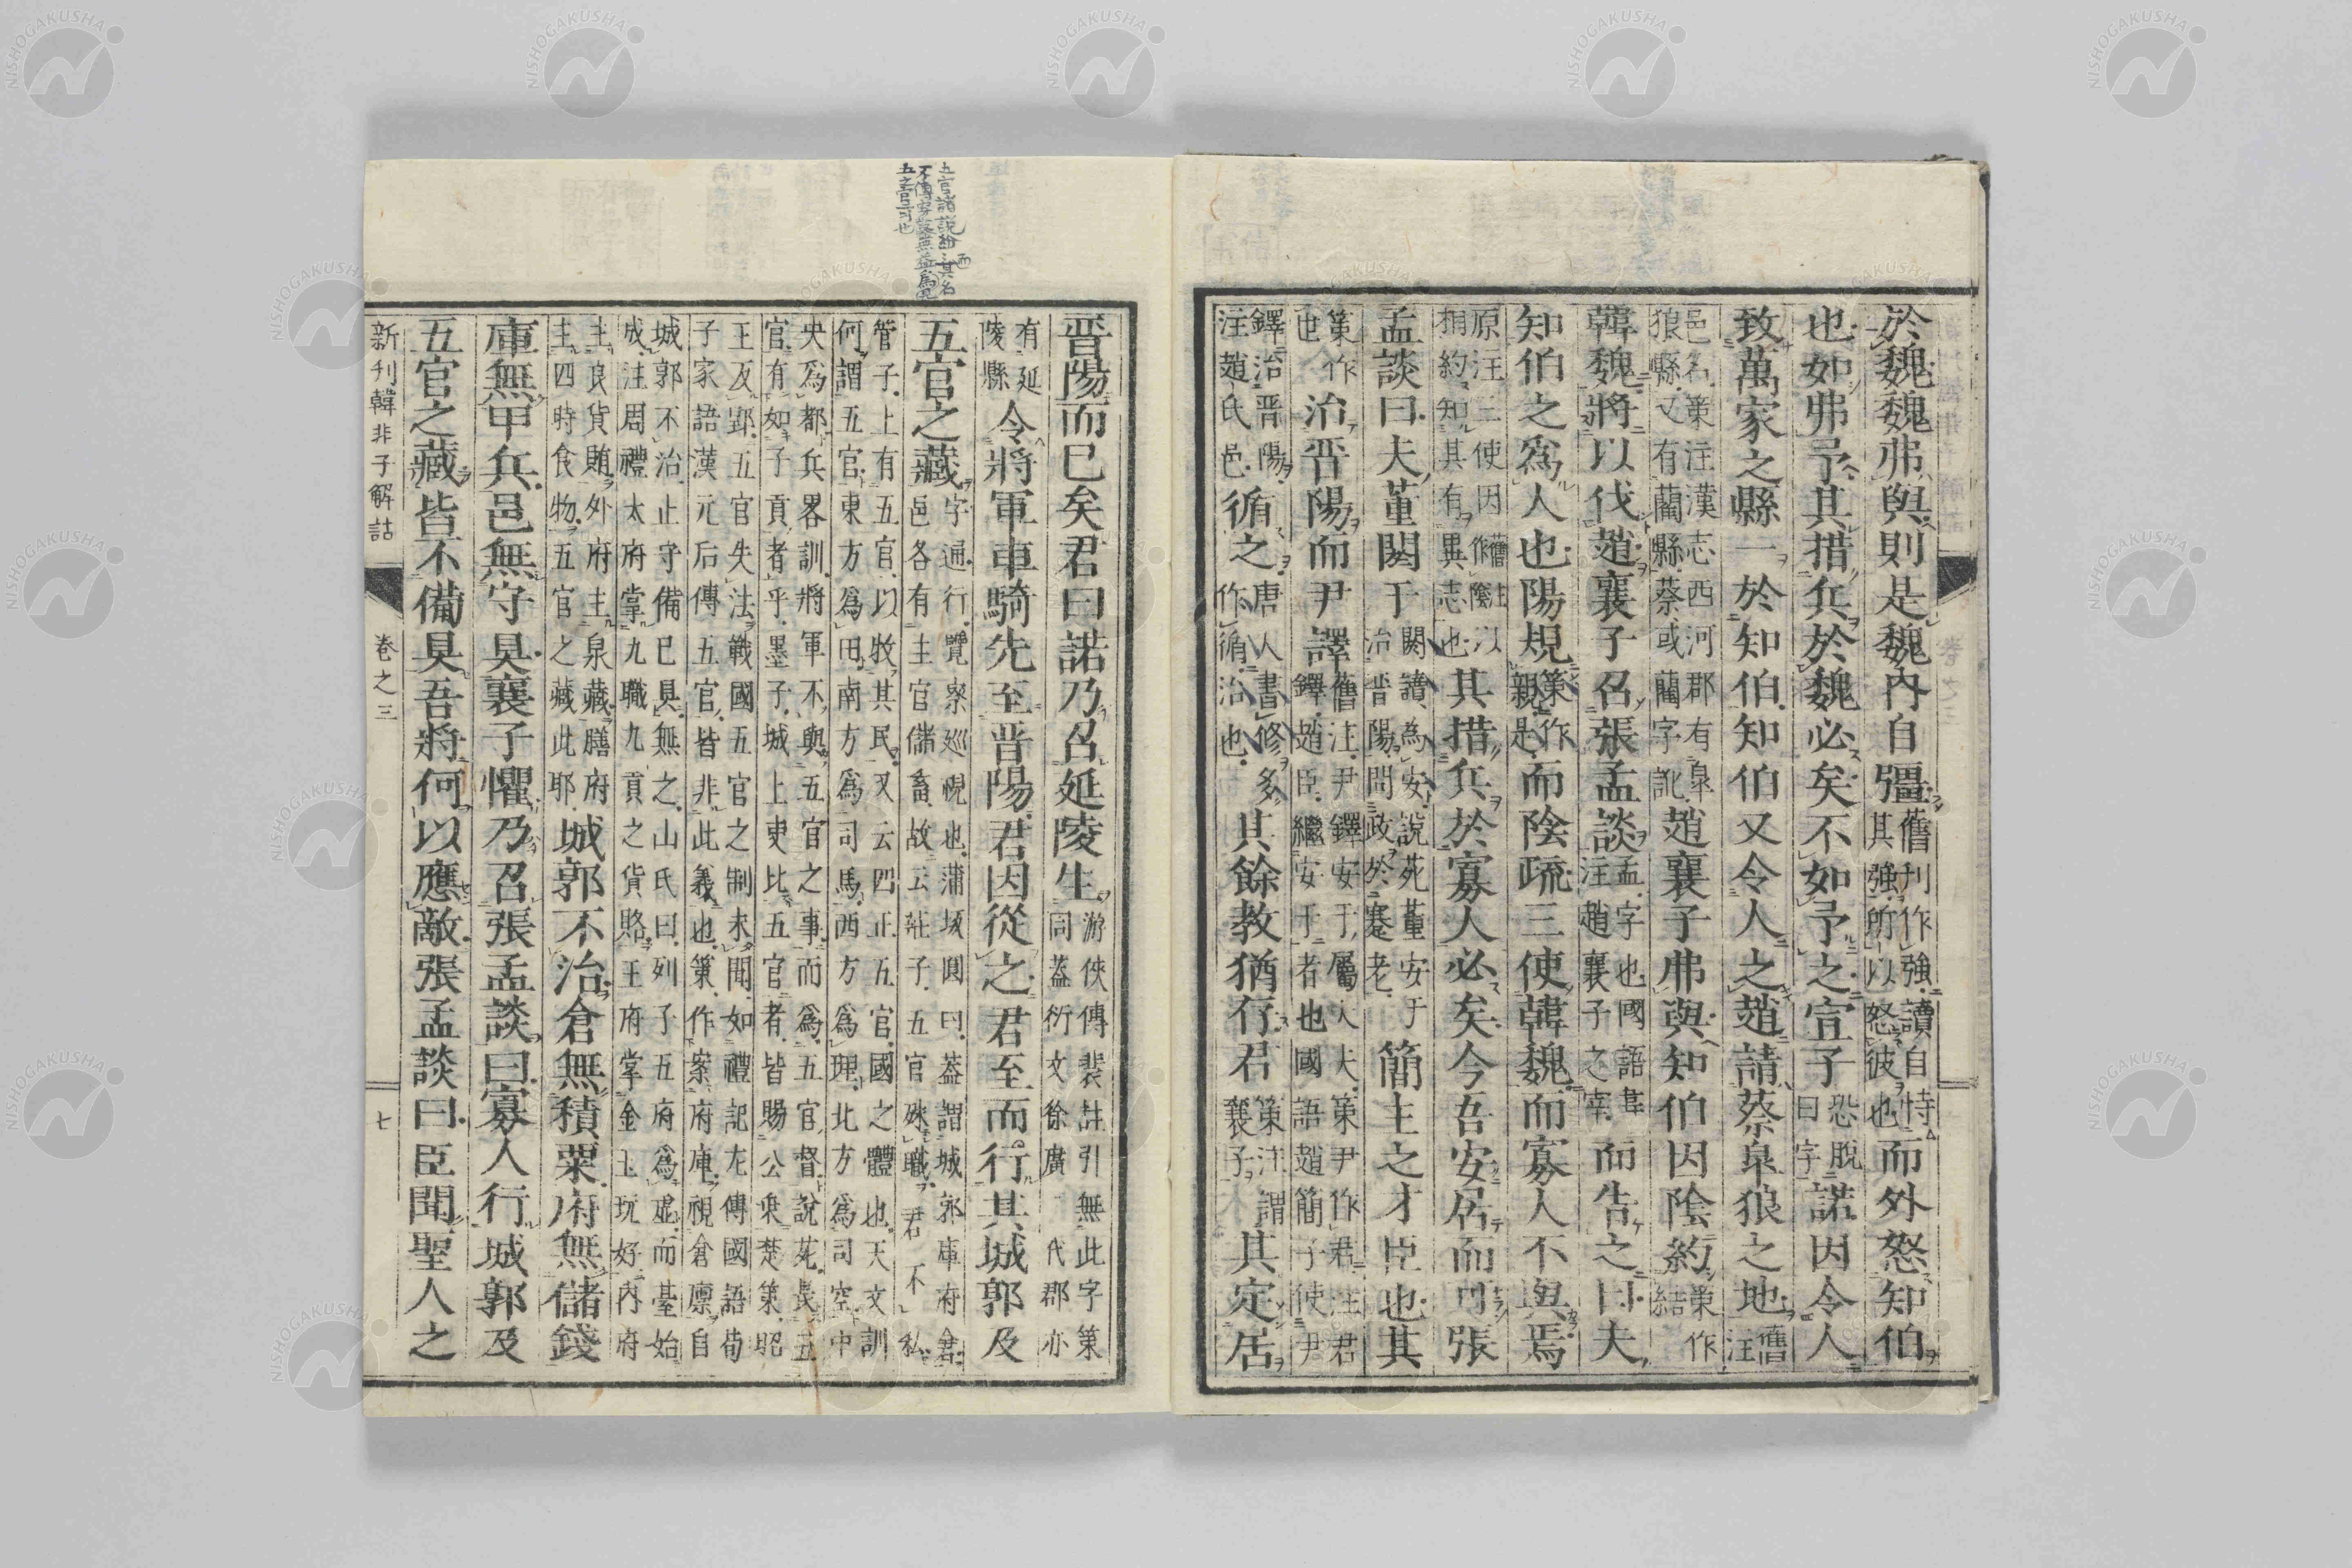 於魏魏弗與則是魏內自彊舊刊作強讀自恃
其強所以怒彼也而外怒知伯
也如弗予其措兵於魏必矣不如予之宣子恐脫
曰字諾因令人
致萬家之縣一於知伯知伯又令人之趙請蔡皐狼之地舊
注
邑名策注漢志西河郡有皐
狼縣又有藺縣蔡或藺字訛趙襄子弗與知伯因陰約策作
結
韓魏將以伐趙襄子召張孟談孟字也國語甚
注趙襄子之宰而告之曰夫
知伯之爲人也陽規策作
親是而陰疏三使韓魏而寡人不與焉
原注三使因舊註作陰以
捐約知其有異志也其措兵於寡人必矣今吾安居而可張
孟談曰夫董閼于閼讀為安說苑董安于
治晋陽問政於蹇老簡主之才臣也其
策作
世治晋陽而尹譯舊注尹鐸安于屬人夫策尹作君注君
鐸趙臣繼安于者也國語趙簡子使尹
鐸治晋陽
注趙氏邑循之唐人書修多
作循治也其餘教猶存君策注謂
襄子其定居
五官諸說紛而其名
不傳
五之官可也
晋陽而已矣君曰諾乃召延陵生游俠傳裴註引無此字策
同蓋衍文徐廣代郡亦
有延
陵縣令將軍車騎先至晋陽君因從之君至而行其城郭及
五官之藏字通行覽察巡視也蒲坂圓曰蓋謂城郭庫府倉
邑各有主官儲畜故云莊子五官殊職君不私
管子上有五官以牧其民又云四正五官國之體也天文訓
何謂五官東方爲田南方爲司馬西方爲理北方爲司空中
央爲都兵畧訓將軍不與五官之事而爲五官督說苑長五
官有如子貢者乎墨子城上吏比五官者皆賜公乘楚策昭
王反郢五官失法戰國五官之制未聞如禮記左傳國語荀
子家語漢元后傳五官皆非此義也策作案府庫視倉廩自
城郭不治止守備已具無之山氏曰列子五府爲虛而臺始
成注周禮太府掌九職九貢之貨賂王府掌金玉玩好內府
主良貨賄外府主泉藏膳府
主四時食物五官之藏此耶城郭不治倉無積粟府無儲錢
庫無甲兵邑無守具襄子懼乃召張孟談曰寡人行城郭及
五官之藏皆不備具吾將何以應敵張孟談曰臣聞聖人之
新刊韓非子解詁 卷之三 七
NISHOGAKUSHA